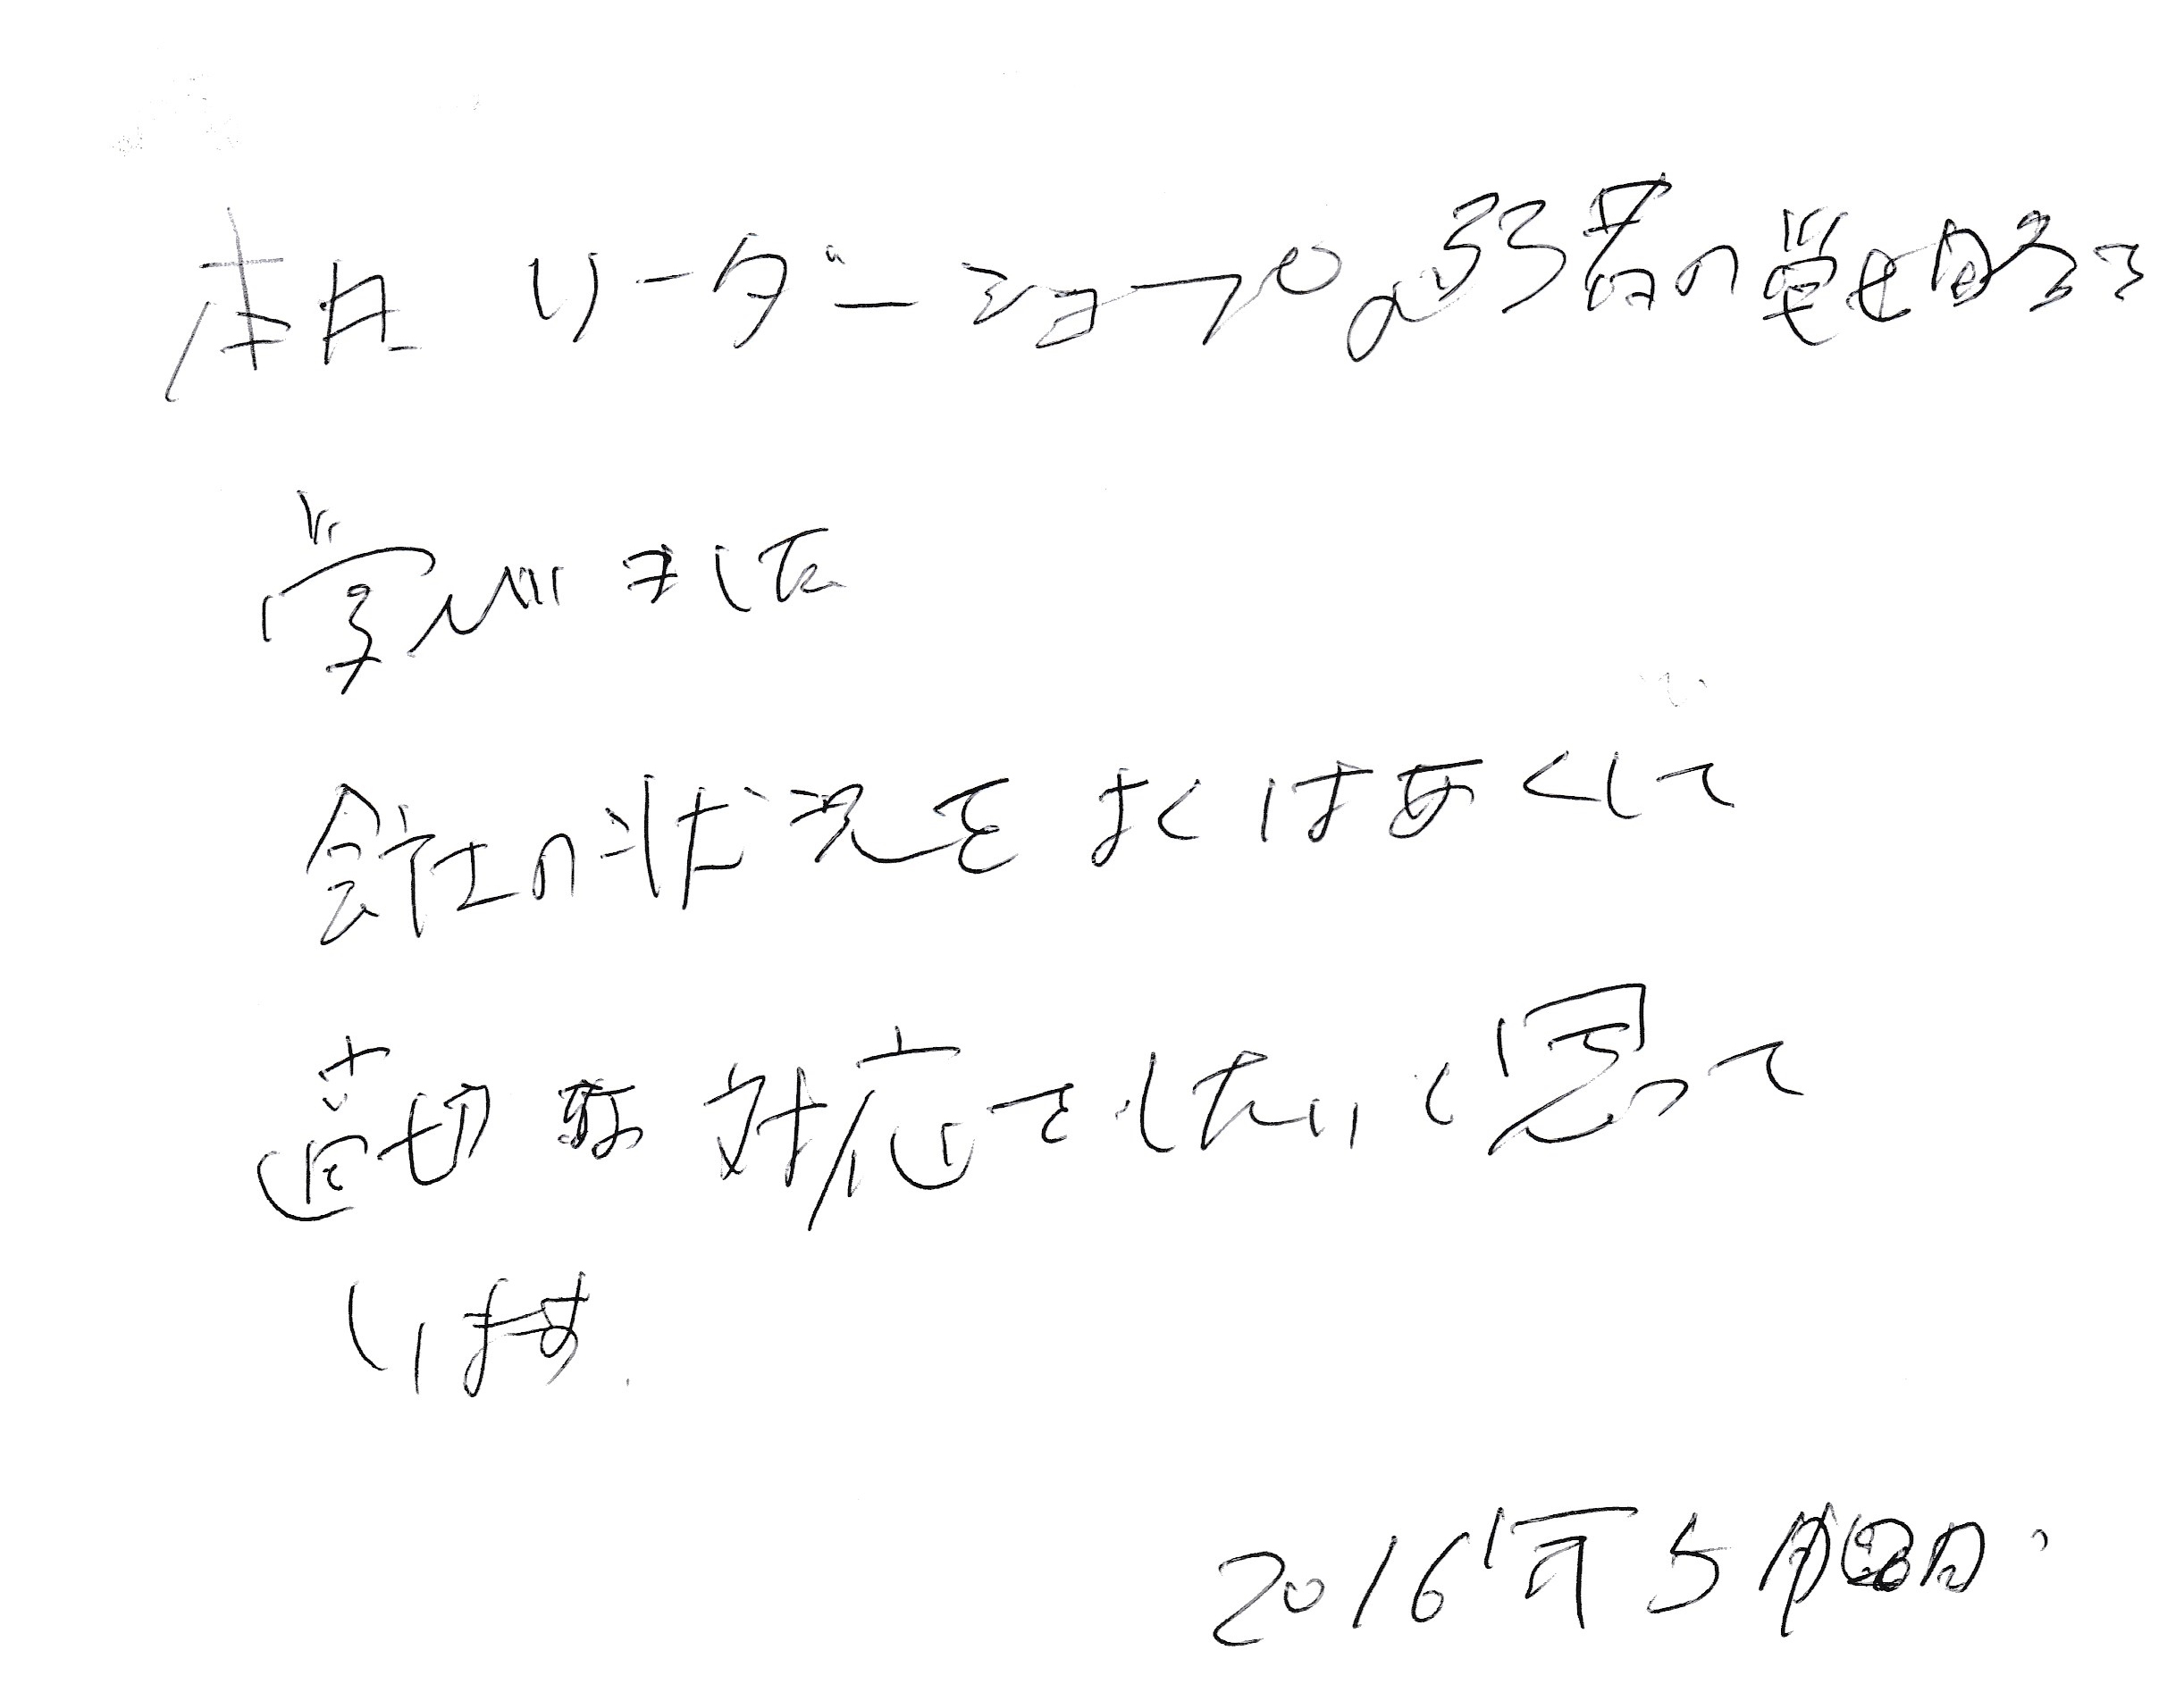 本日 リーダーシップの弱者の戦略を
学びました
会社の状況をよくはあくして
適切な対応をしたいと思って
います.
2016年5月 日